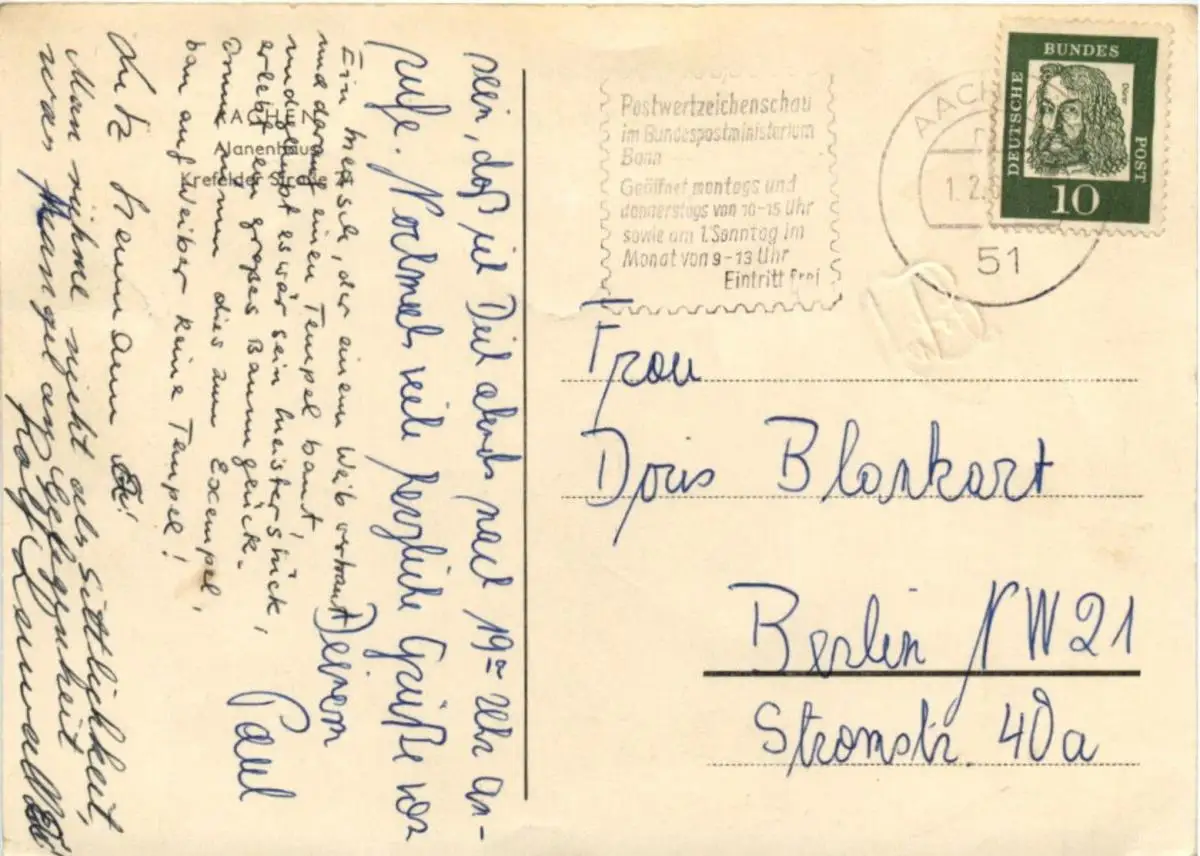 sein, daß ich Dich abends nach 19°° Uhr an-
rufe. Nochmals viele herzliche Grüße von
Deinem
Paul
Ein Mensch, der einem Weib vertraut
und darauf einen Tempel baut,
und glaubt es wär sein Meisterstück,
erlebt ein großes Baumglück.
Drum nimm dies zum Exempel,
bau auf Weiber keine Tempel!
Lutz Hennann
Man rühme nicht als Sittlichkeit,
was Mangel an Gelegenheit
Ralf
AACHEN
Alanenhaus
Krefelder Straße
Postwertzeichenschau
im Bundespostministerium
Bonn
Geöffnet montags und
donnerstags von 10-15 Uhr
sowie am 1. Sonntag im
Monat von 9-13 Uhr
Eintritt frei
AACHEN
1.2.6
51
DEUTSCHE
BUNDES
POST
Dürer
10
Frau
Doris Blankart
Berlin NW21
Stromstr. 40a